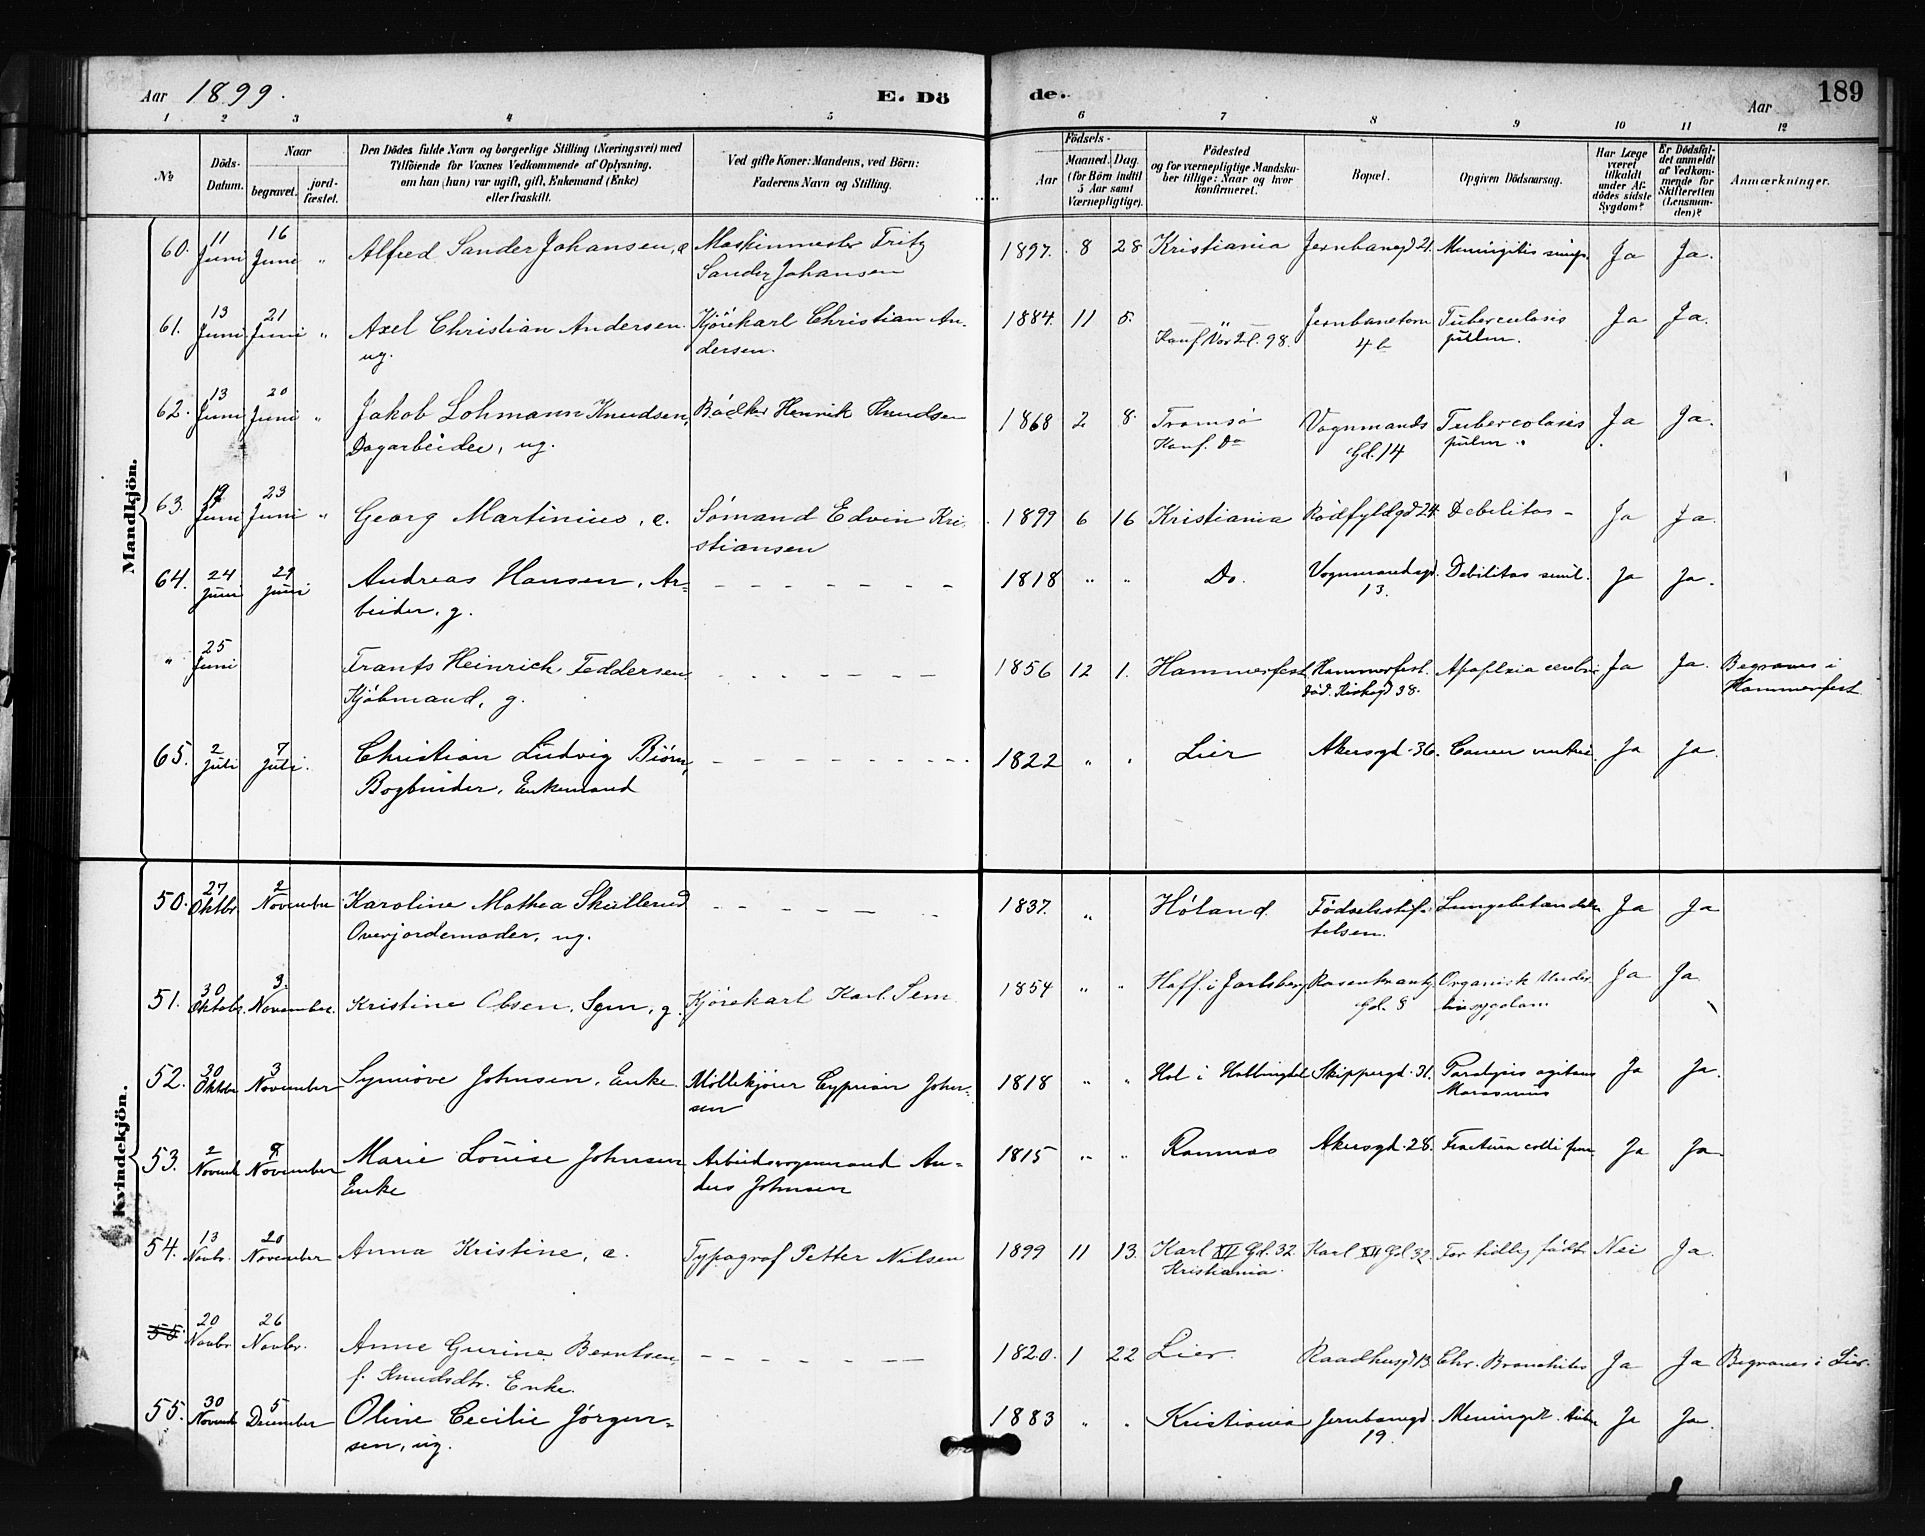 Aar 1899. E. Dö de. 189
Aar
1 2 3 4 5 6 7 8 9 10 11 12
No
Döds-Datum.
Naar
begravet. jord-fæstet.
Den Dödes fulde Navn og borgerlige Stilling (Næringsvei) med
Tilföiende for Voxnes Vedkommende af Oplysning,
om han (hun) var ugift, gift, Enkemand (Enke)
eller fraskilt.
Ved gifte Koner: Mandens, ved Börn:
Faderens Navn og Stilling.
Födsels-
Aar
Maaned. Dag.
(for Börn indtil
5 Aar samt
Værnepligtige).
Födested
og for værnepligtige Mandsku-
ber tillige: Naar og hvor
konfirmeret.
Bopæl.
Opgiven Dödsaarsag.
Har Læge
været
tilkaldt
under Af-
dödes sidste
Sygdom?
Er Dödsfal-
det anmeldt
af Vedkom-
mende for
Skifteretten
(Lensman-
den)?
Anmærkninger.
Mandkjön.
60. 11 Juni 16 Juni " Alfred Sander Johansen, e. Maskinmester Fritz Sander Johansen 1897. 8 28 Kristiania Jernbanegd 21. Meningitis simp. Ja Ja.
61. 13 Juni 21 Juni " Axel Christian Andersen ug. Kjörekarl Christian An-dersen. 1884. 11 5. " Konf. Vor 98. Jernbanetorv 4 b Tuberculosis pulm. Ja Ja.
62. 13 Juni 20 Juni " Jakob Lohmann Knudsen, Dagarbeider, ug. Bödker Henrik Knudsen 1868 2 8. Tromsö Konf. Do Vognmands Gd. 14 Tubercolosis pulm. Ja Ja.
63. Juni 23 Juni " Georg Martinius, e. Sömand Edvin Kri-stiansen 1899 6 16 Kristiania Rödfyldgd 24. Debilitas - Ja Ja.
64. 24 Juni 29 Juni Andreas Hansen, Ar-beider, g. - - - - - - - 1818 " " Do. Vognmandsgd. 13. Debilitas senil. Ja Ja.
" 25 Juni Frants Heinrich Feddersen Kjöbmand, g. - - - - - - - 1856 12 1. Hammerfest Hammerfest. död. 38. Apoplexia cerebri Ja Ja. Begraves i Hammerfest
65. 2 Juli 7 Juli. Christian Ludvig Biörn, Bogbinder, Enkemand - - - - - - - - 1822 " " Lier Akersgd. 36. Cancer ventric Ja Ja.
Kvindekjön.
50. 27 Oktbr 2 November Karoline Mathea Skullerud Overjordemoder, ug. - - - - - - 1837. " Höland. Födselsstif-telsen. Lungebetændelse Ja Ja
51. 30 Oktobr. 3. November. Kristine Olsen, Sem, g. Kjörekarl Karl Sem 1854 " " Hoff i Jarlsberg Rosenkrantz Gd. 8 Organisk Under-livssygdom Ja Ja
52. 30 Oktbr 3 November Synnöve Johnsen, Enke. Möllekjörer Cyprian John-sen 1818 " " Hol i Hallingdal Skippergd. 31. Paralysis agitans Marasmus Ja Ja.
53. 2 Novemb 7 November Marie Louise Johnsen Enke Arbeidsvognmand An-ders Johnsen 1815 " " Ramnæs Akersgd. 28. Fractura colli fem. Ja Ja
54. 13 Novbr. 20 November Anna Kristine, e. Typograf Petter Nilsen 1899 11 13. Karl XII Gd. 32. Kristiania. Karl XII Gd 32. For tidlig födt Nei Ja.
55. 20 Novbr. 26 Novbr. Anne Gurine Berntsen, f. Knudsdtr. Enke. - - - - - - 1820. 1 22 Lier. Raadhusgd 13. Chr. Bronchitis Ja Ja Begraves i Lier.
55. 30 Novemb 5 December Oline Cecilie Jörgen-sen, ug. 1883 " " Kristiania Jernbanegd. 19. Meningit. tub. Ja Ja.